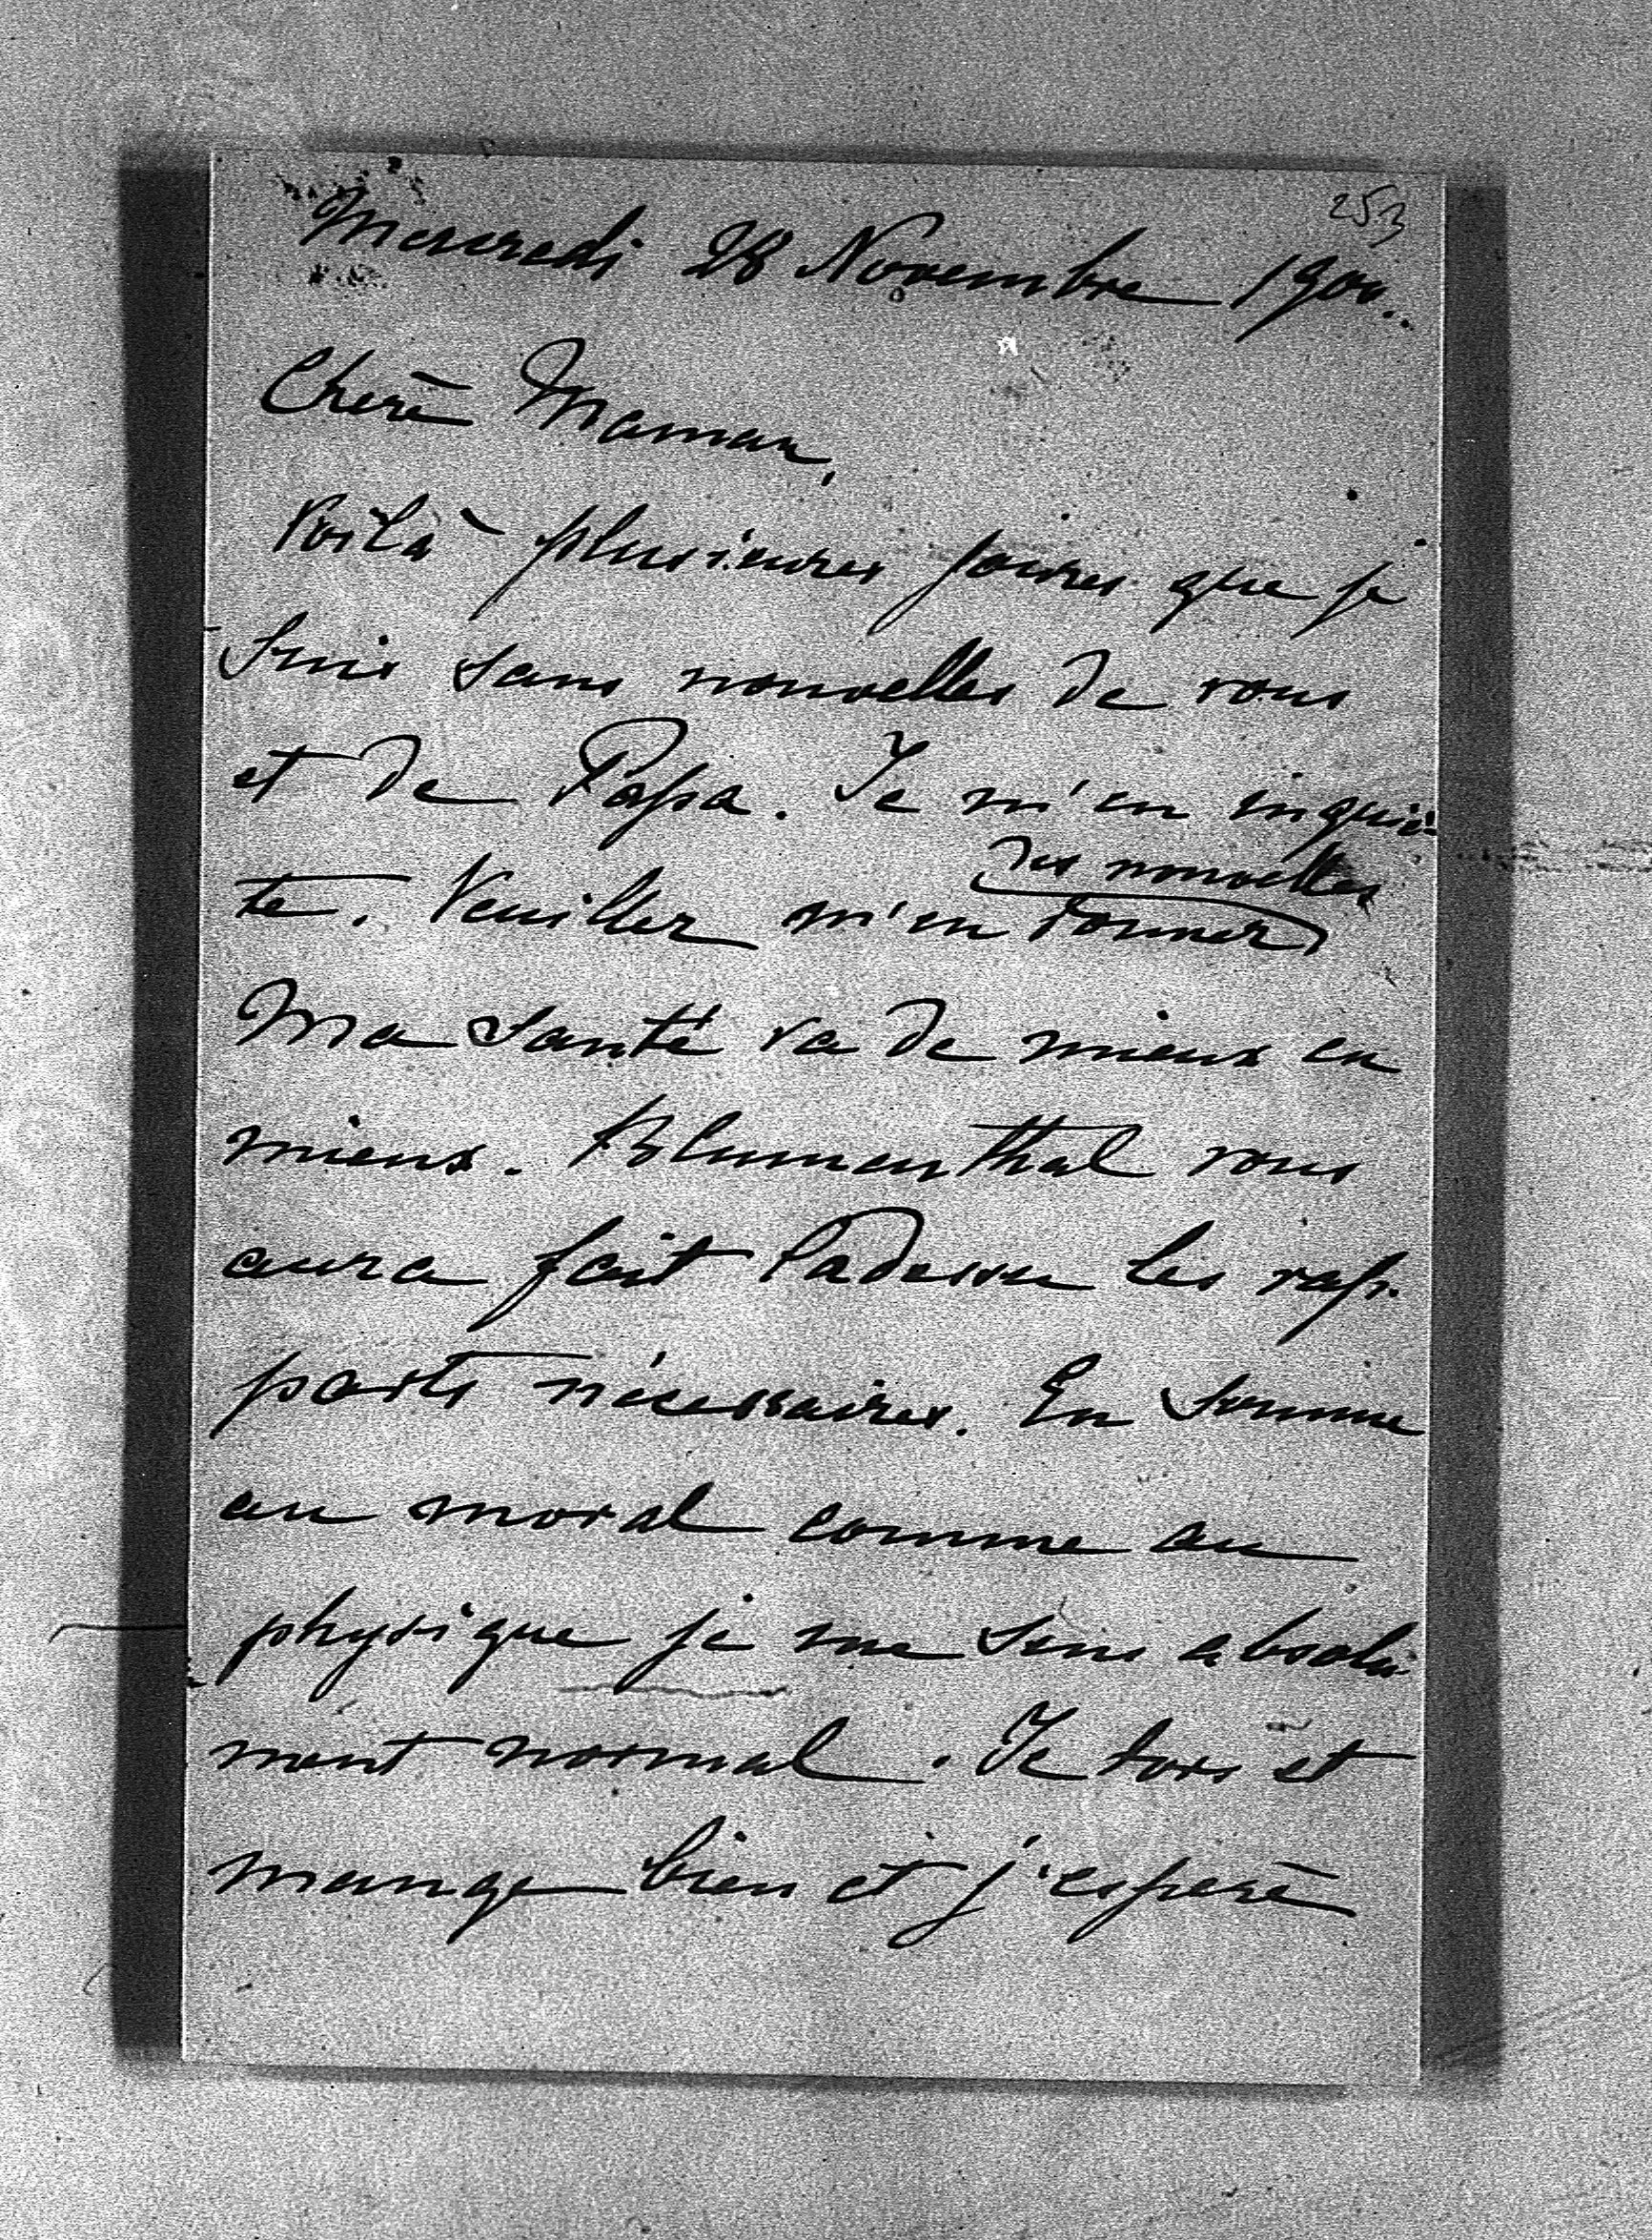 253
Mercredi 28 Novembre 1900..
Chère Maman,
Voilà plusieurs jours que je
suis sans nouvelles de vous
et de Papa. Je m'en inquiè-
des nouvelles
te. Veuillez m'en donner
Ma santé va de mieux en
mieux. Blumenthal vous
aura fait là-dessus les rap-
ports nécessaires. En somme
au moral comme au
physique je me sens absolu-
ment normal. Je dors et
mange bien et j'espère